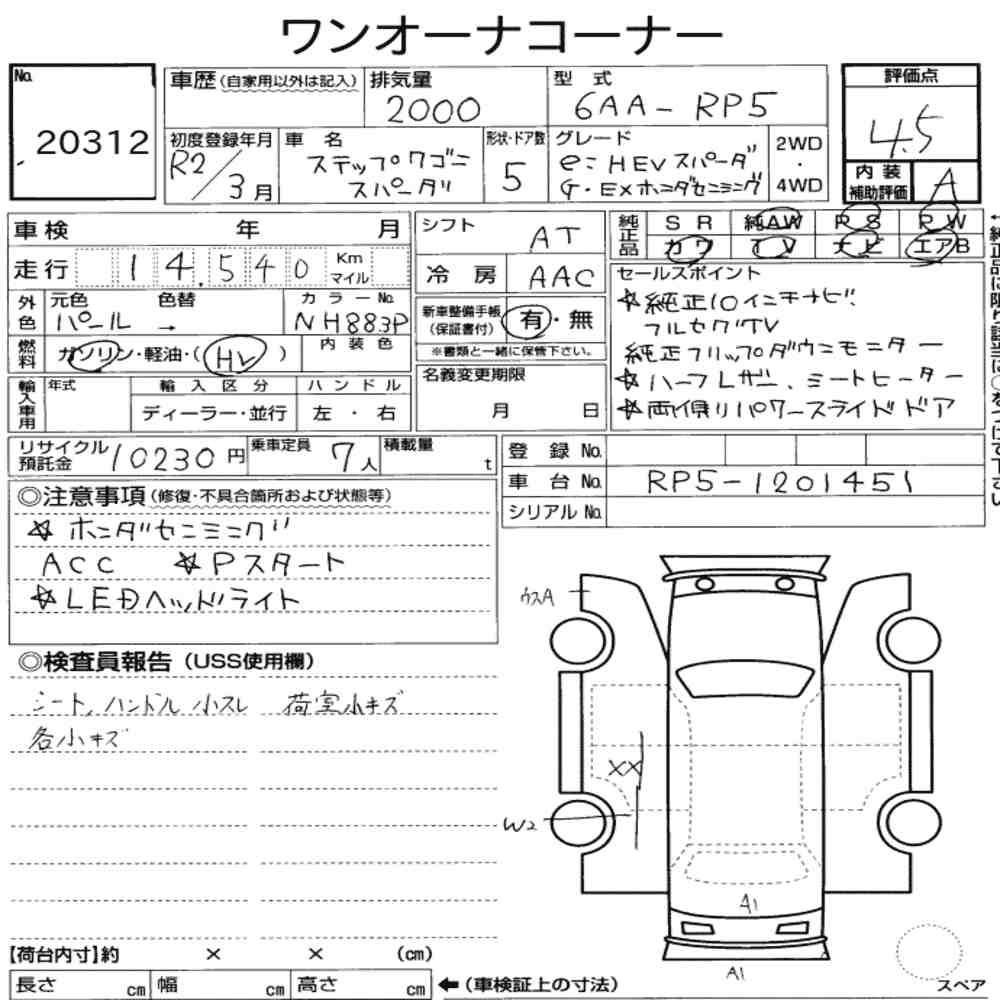 ワンオーナコーナー
No. 20312
車歴(自家用以外は記入) 排気量 2000 型式 6AA-RP5 評価点 4.5
初度登録年月 R2/3月 車名 ステップワゴン スパーダ 形状・ドア数 5 グレード e:HEVスパーダ G・EXホンダセンシング 2WD・4WD 内装補助評価 A
車検 年 月 シフト AT 純正品 SR 純AW PS PW
走行 14,540 Km マイル 冷房 AAC カワ TV ナビ エアB
外色 元色 パール 色替 → カラーNo. NH883P
燃料 ガソリン・軽油・(HV) 内装色
新車整備手帳(保証書付) 有・無
※書類と一緒に保管下さい。
輸入車用 年式 輸入区分 ディーラー・並行 ハンドル 左・右
名義変更期限 月 日
セールスポイント
☆純正10インチナビ
フルセグTV
純正フリップダウンモニター
☆ハーフレザー、シートヒーター
☆両側パワースライドドア
←純正品に限り該当に○をつけて下さい
リサイクル預託金 10230円 乗車定員 7人 積載量 t
登録No.
車台No. RP5-1201451
シリアルNo.
◎注意事項(修復・不具合箇所および状態等)
☆ホンダセンシング
ACC ☆Pスタート
☆LEDヘッドライト
◎検査員報告(USS使用欄)
シート、ハンドル小スレ 荷室小キズ
各小キズ
ウスA
XX
W2
A1
A1
スペア
【荷台内寸】約 × × (cm)
長さ cm 幅 cm 高さ cm ←(車検証上の寸法)